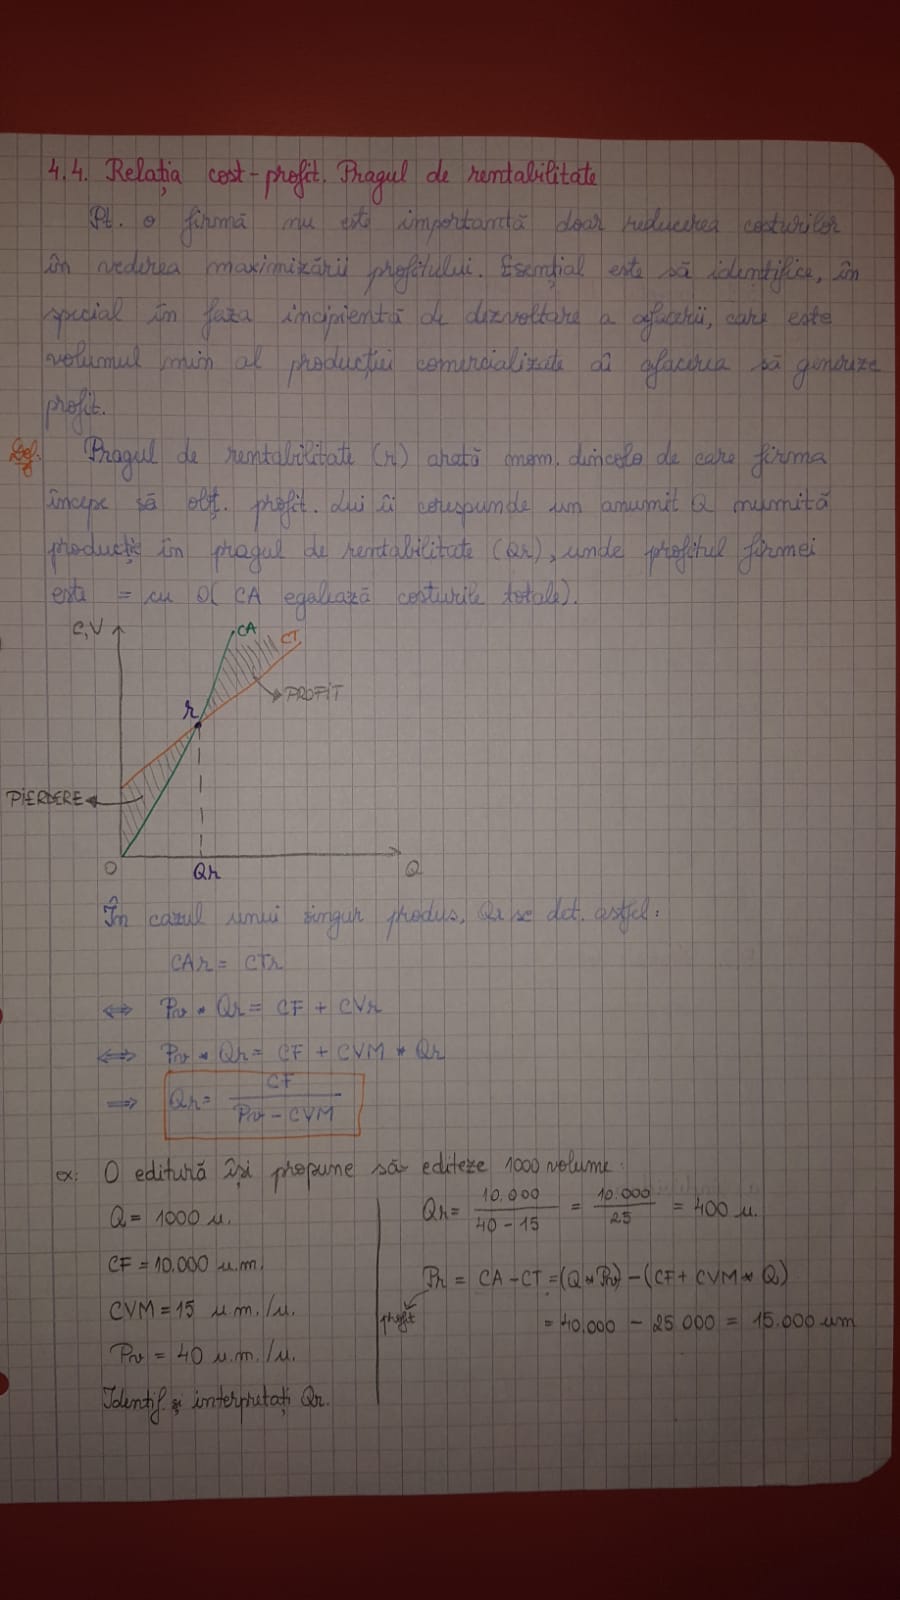 4.4. Relația cost-profit. Pragul de rentabilitate
Pt. o firmă nu este importantă doar reducerea costurilor
în vederea maximizării profitului. Esențial este să identifice, în
special în faza incipientă de dezvoltare a afacerii, care este
volumul min al producției comercializate aî afacerea să genereze
profit.
Def. Pragul de rentabilitate (r) arată mom. dincolo de care firma
începe să obț. profit. Lui îi corespunde un anumit Q numită
producție în pragul de rentabilitate (Qr), unde profitul firmei
este = cu 0( CA egalează costurile totale).
C,V
CA
CT
PROFIT
r
PIERDERE
0
Qr
Q
În cazul unui singur produs, Qr se det. astfel:
CAr = CTr
⟺ Pv * Qr = CF + CVr
⟺ Pv * Qr = CF + CVM * Qr
⟹ Qr = CF / (Pv - CVM)
ex: O editură își propune să editeze 1000 volume.
Q = 1000 u.
CF = 10.000 u.m.
CVM = 15 u.m./u.
Pv = 40 u.m./u.
Identif. și interpretați Qr.
Qr = 10.000 / (40 - 15) = 10.000 / 25 = 400 u.
Pr = CA - CT = (Q * Pv) - (CF + CVM * Q)
profit
= 40.000 - 25 000 = 15.000 um